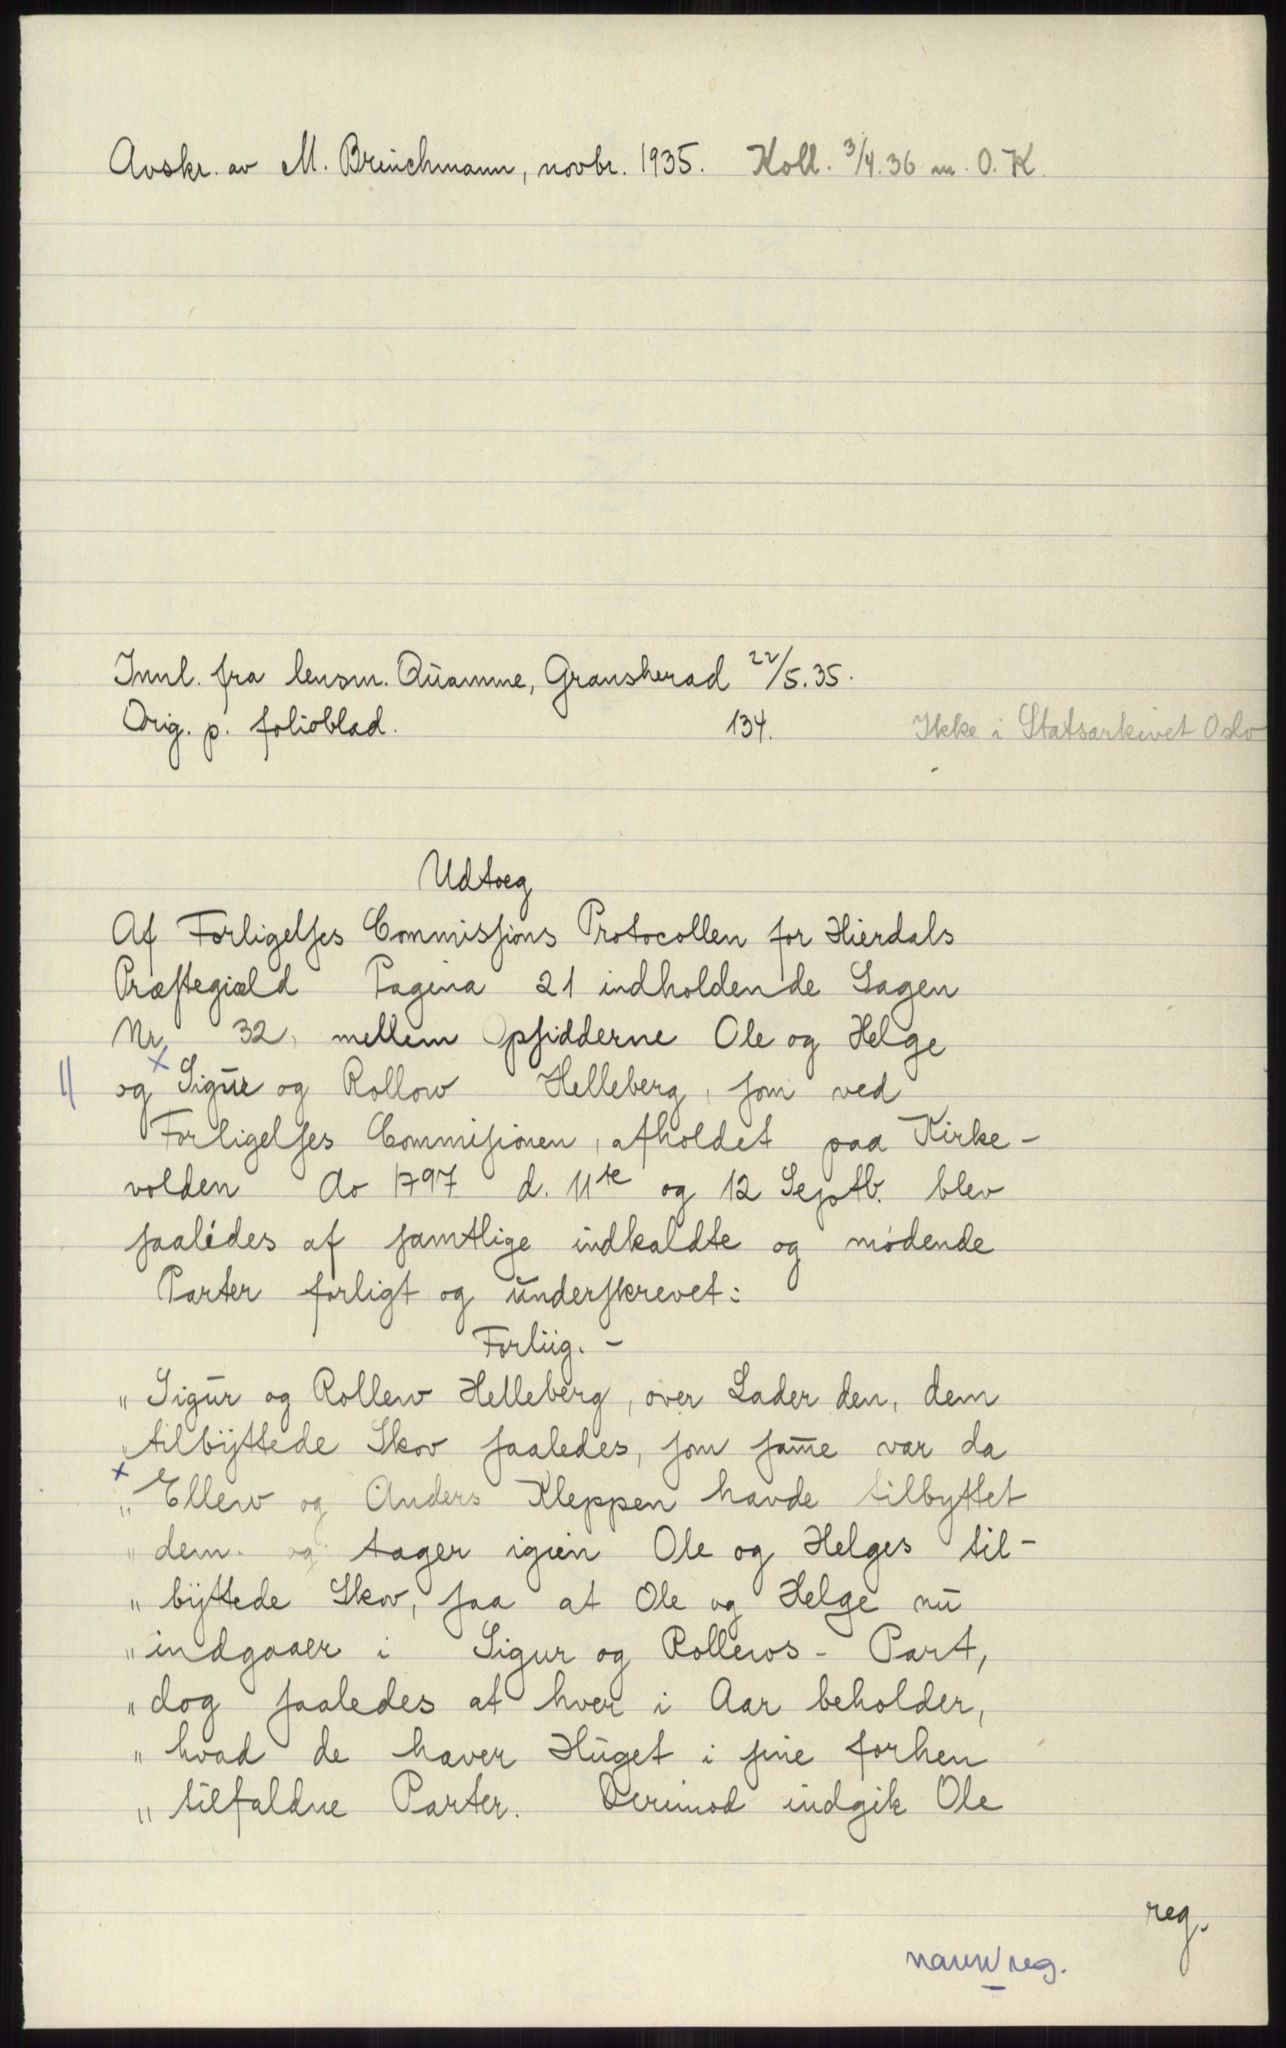 Avskr. av M. Brinchmann, novbr. 1935. Koll. 3/4.36 m. O. K.
Innl. fra lensm. Quamme, Gransherad 22/5.35.
Orig. p. folioblad. 134. Ikke i Statsarkivet Oslo
Udtog
Af Forligelses Commissions Protocollen for Hierdals
Præstegiæld Pagina 21 indholdende Sagen
Nr. 32, mellem Opsidderne Ole og Helge
|| og x Sigur og Rollow Helleberg, som ved
Forligelses Commisionen, afholdet paa Kirke-
volden Ao 1797 d. 11te og 12 Septb. blev
saaledes af samtlige indkaldte og mødende
Parter forligt og underskrevet:
Forliig. -
" Sigur og Rollew Helleberg, over Lader den, dem
" tilbyttede Skov saaledes, som same var da
x " Ellew og Anders Kleppen havde tilbyttet
" dem. og tager igien Ole og Helges til-
" byttede Skov, saa at Ole og Helge nu
" indgaaer i Sigur og Rollews - Part,
" dog saaledes at hver i Aar beholder,
" hvad de haver Huget i sine forhen
" tilfaldne Parter. Derimod indgik Ole
reg.
navnreg.